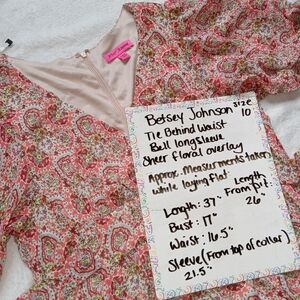 Betsey Johnson size 10
Tie Behind Waist
Bell longsleeve
Sheer floral overlay
Approx. Measurments taken
while laying flat.
Length: 37"
Length From pit: 26"
Bust: 17"
Waist: 16.5"
Sleeve (From top of collar)
21.5"